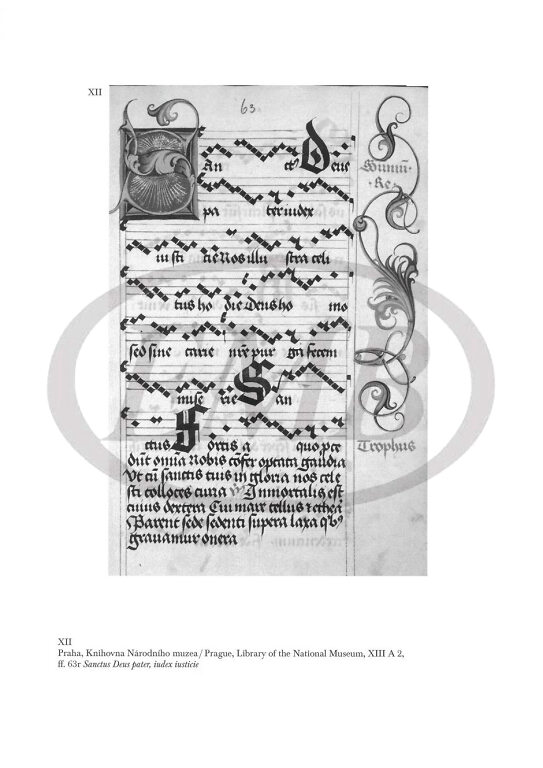 XII
63
San ctus Deus
pa ter iudex
iu sti cie Nos illu stra celi
tus ho die Deus ho mo
sed sine carie pur ga fecem
mise rie San
ctus Fortis a quo pce
dūt omīa Nobis cōfer optata gaudia
Vt cū sanctis tuis in gloria nos cele
sti colloces curia Immortalis est
cuius dextera Cui mare tellus et ethera
Parent sede sedenti supera laxa
gravamur onera
Trophus
XII
Praha, Knihovna Národního muzea / Prague, Library of the National Museum, XIII A 2,
ff. 63r Sanctus Deus pater, iudex iusticie